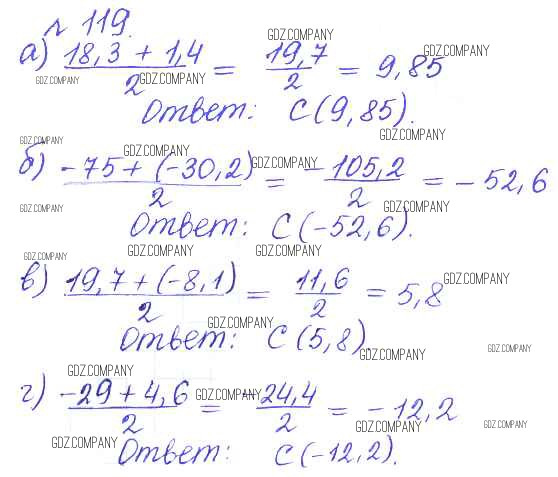 № 119.
GDZ.COMPANY
а) (18,3 + 1,4)/2 = 19,7/2 = 9,85
GDZ.COMPANY
GDZ.COMPANY GDZ.COMPANY
Ответ: С(9,85).
GDZ.COMPANY
GDZ.COMPANY GDZ.COMPANY
б) (-75 + (-30,2))/2 = -105,2/2 = -52,6
GDZ.COMPANY
GDZ.COMPANY GDZ.COMPANY
Ответ: С(-52,6).
GDZ.COMPANY GDZ.COMPANY GDZ.COMPANY
в) (19,7 + (-8,1))/2 = 11,6/2 = 5,8
GDZ.COMPANY
GDZ.COMPANY
Ответ: С(5,8).
GDZ.COMPANY GDZ.COMPANY
GDZ.COMPANY
г) (-29 + 4,6)/2 = -24,4/2 = -12,2
GDZ.COMPANY
GDZ.COMPANY GDZ.COMPANY GDZ.COMPANY
Ответ: С(-12,2).